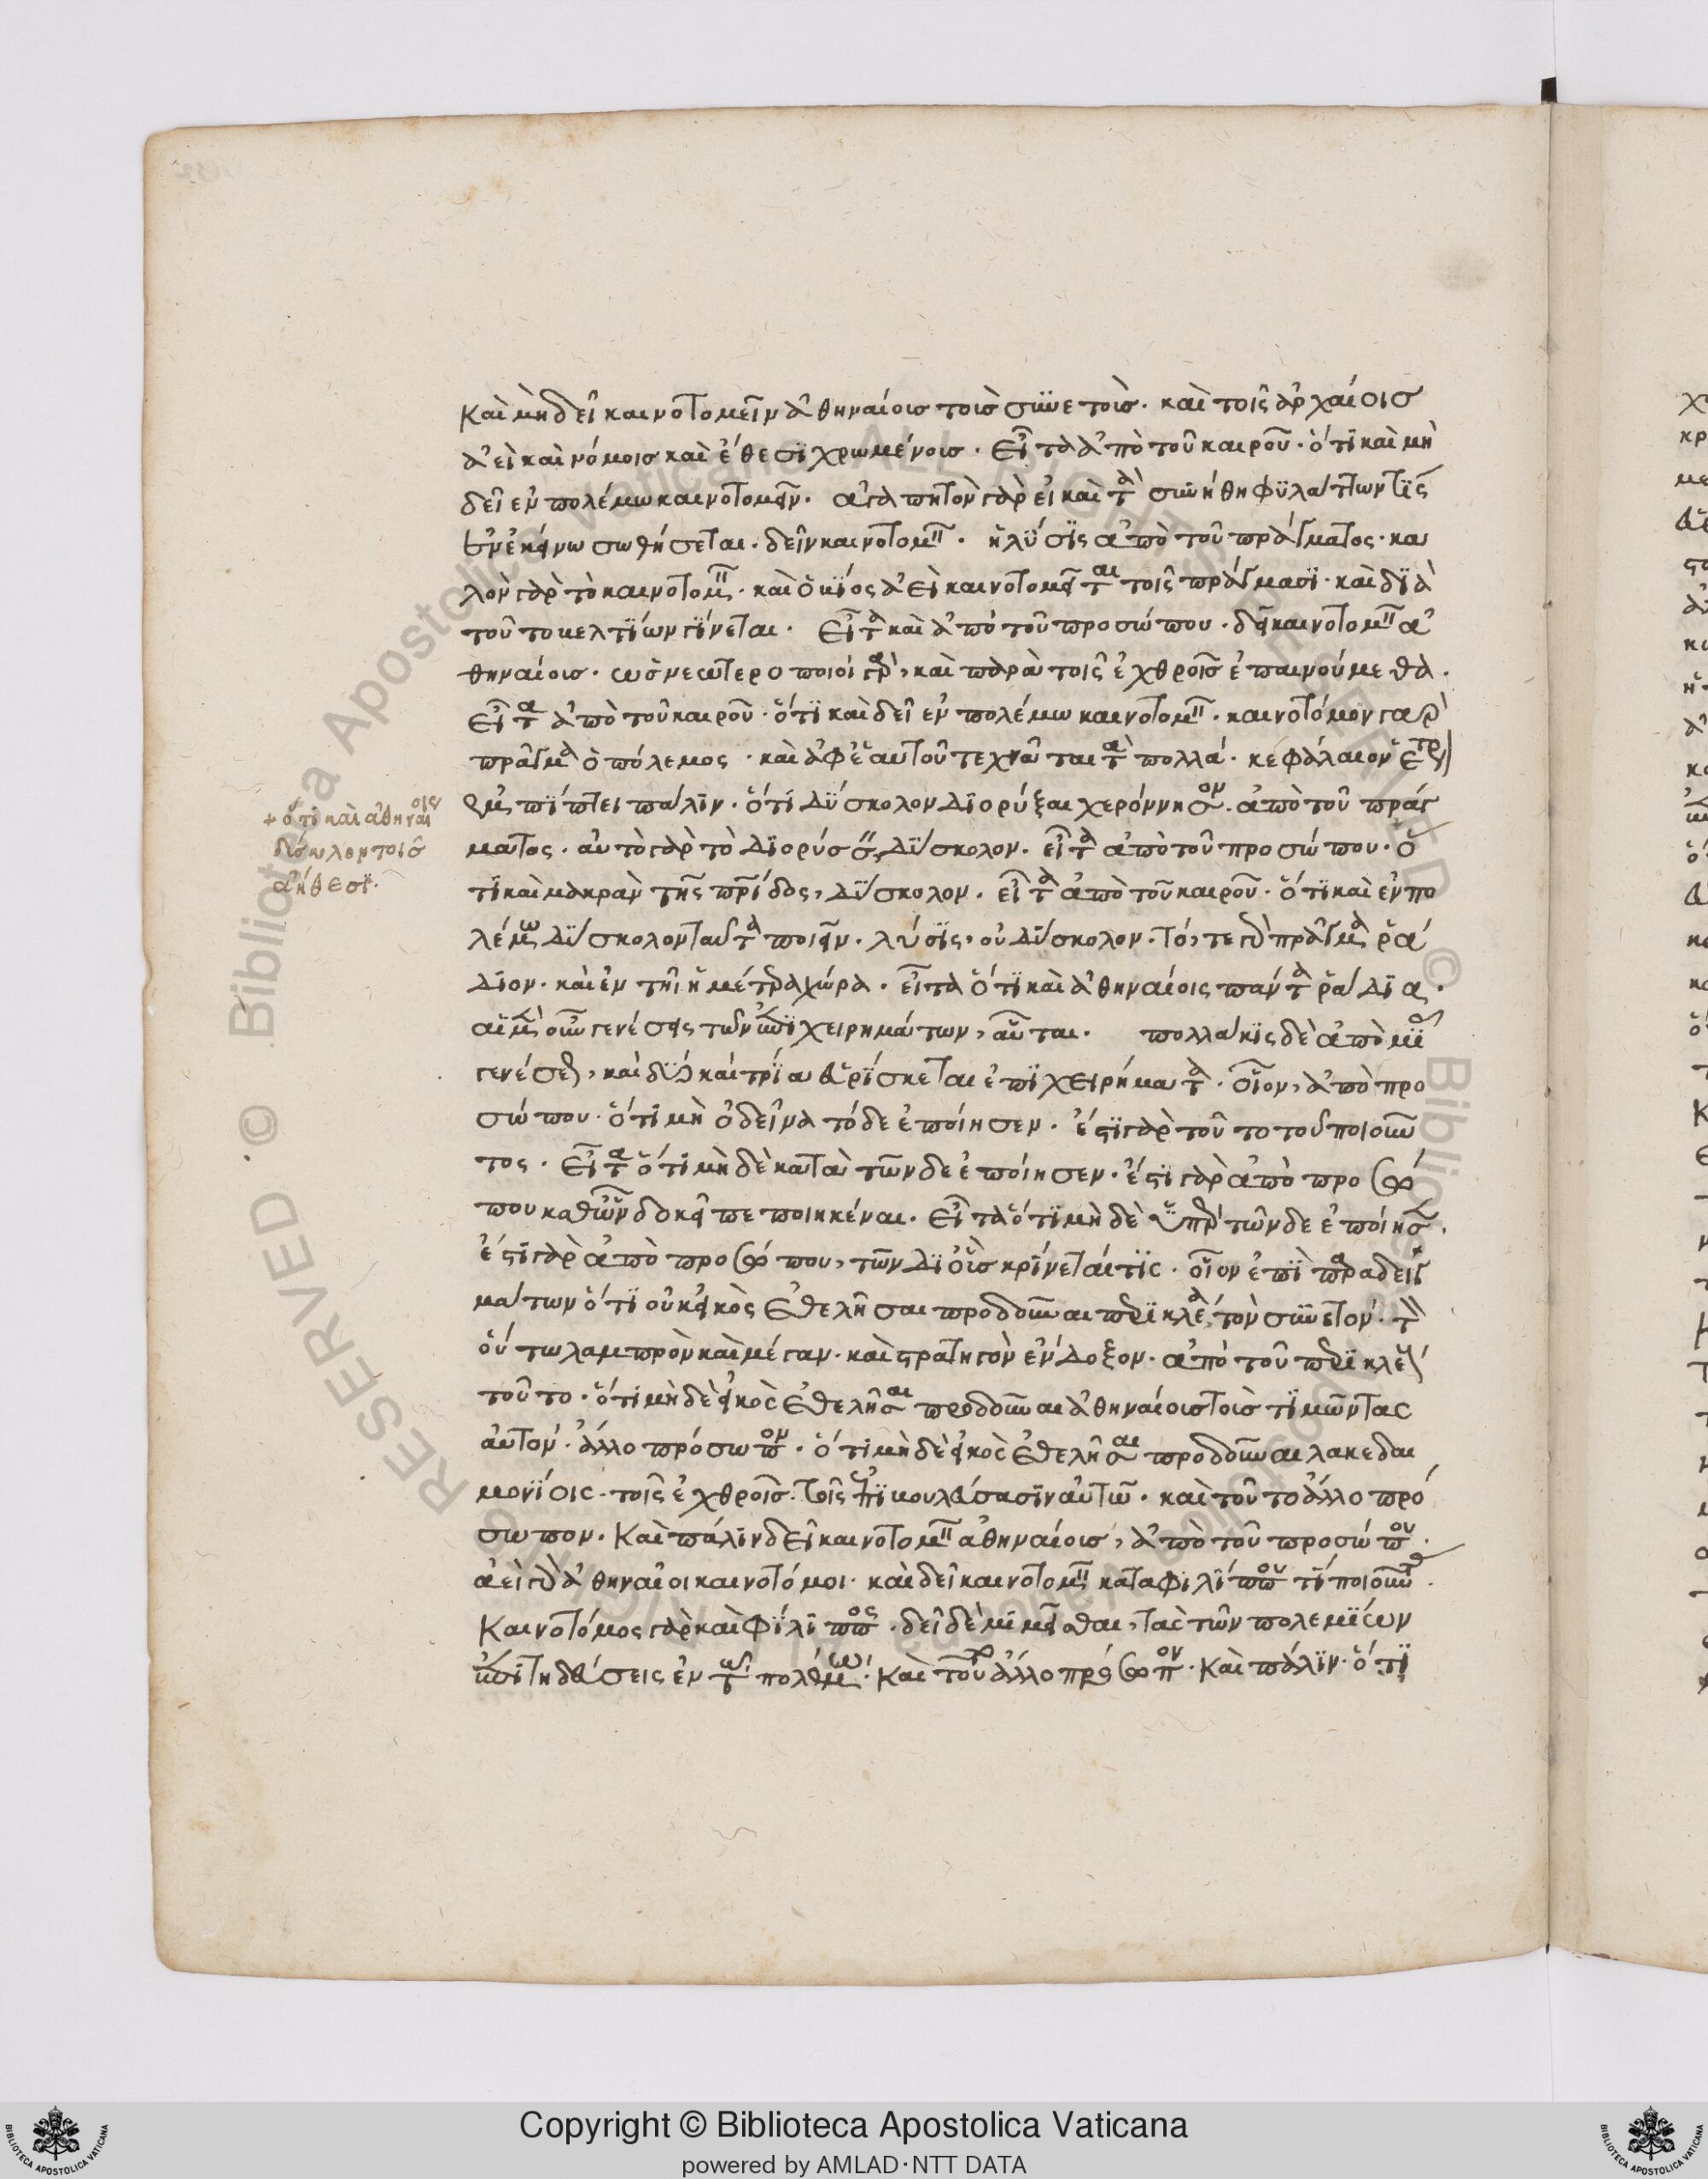 Καὶ μὴ δεῖ καινοτομεῖν ἀθηναίοις τοῖς συνετοῖς· καὶ τοῖς ἀρχαίοις
ἀεὶ καὶ νόμοις καὶ ἔθεσι χρωμένοις· Εἶτα ἀπὸ τοῦ καιροῦ· ὅτι καὶ μὴ
δεῖ ἐν πολέμω καινοτομεῖν· ἀγαπητὸν γὰρ εἰ καὶ τὰ συνήθη φυλάττων τίς
ἐν ἐκείνω σωθήσεται· δεῖν καινοτομεῖν· ἡ λύσις ἀπὸ τοῦ πράγματος· κα
λὸν γὰρ τὸ καινοτομεῖν· καὶ ὁ βίος ἀεὶ καινοτομεῖται τοῖς πράγμασι· καὶ διὰ
τοῦτο βελτίων γίνεται· Εἶτα καὶ ἀπὸ τοῦ προσώπου· δεῖ καινοτομεῖν ἀ
θηναίοις· ὡς νεωτεροποιοὶ γὰρ, καὶ παρὰ τοῖς ἐχθροῖς ἐπαινούμεθα·
Εἶτα ἀπὸ τοῦ καιροῦ· ὅτι καὶ δεῖ ἐν πολέμω καινοτομεῖν· καινοτόμον γὰρ
πρᾶγμα ὁ πόλεμος· καὶ ἀφ' ἑαυτοῦ τεχνᾶται τὰ πολλά· κεφάλαιον ἕτερον
ἡμῖν πίπτει πάλιν· ὅτι δύσκολον διορύξαι χερόννησον· ἀπὸ τοῦ πράγ
ματος· αὐτὸ γὰρ τὸ διορύσσειν, δύσκολον· εἶτα ἀπὸ τοῦ προσώπου· ὅ
τι καὶ μακρὰν τῆς πατρίδος, δύσκολον· εἶτα ἀπὸ τοῦ καιροῦ· ὅτι καὶ ἐν πο
λέμω δύσκολον ταῦτα ποιεῖν· λύσις, οὐ δύσκολον· τό, τε γὰρ πρᾶγμα ῥά
διον· καὶ ἐν τῆι ἡμετέρα χώρα· εἶτα ὅτι καὶ ἀθηναίοις πάντα ῥάδια·
αἱ μὲν οὖν γενέσεις τῶν ἐπιχειρημάτων, αὗται· πολλάκις δὲ ἀπὸ μιᾶς
γενέσεως, καὶ δύο καὶ τρία εὑρίσκεται ἐπιχειρήματα· οἷον, ἀπὸ προ
σώπου· ὅτι μὴ ὁ δεῖνα τόδε ἐποίησεν· ἔστι γὰρ τοῦτο τοῦ ποιοῦν
τος· Εἶτα ὅτι μὴ δὲ κατὰ τῶνδε ἐποίησεν· ἔστι γὰρ ἀπὸ προσώ
που καθ' ὧν δοκεῖ πεποιηκέναι· Εἶτα ὅτι μὴ δὲ ὑπὲρ τῶνδε ἐποίησεν·
ἔστι γὰρ ἀπὸ προσώπου, τῶν δι' οὓς κρίνεταί τις· οἷον ἐπὶ παραδειγ
μάτων ὅτι οὐκ εἰκὸς ἐθελῆσαι προδοῦναι περικλέα, τὸν συνετόν· τὸν
οὕτω λαμπρὸν καὶ μέγαν· καὶ στρατηγὸν ἔνδοξον· ἀπὸ τοῦ περικλέους
τοῦτο· ὅτι μὴ δὲ εἰκὸς ἐθελῆσαι προδοῦναι ἀθηναίους τοὺς τιμῶντας
αὐτόν· ἄλλο πρόσωπον· ὅτι μὴ δὲ εἰκὸς ἐθελῆσαι προδοῦναι λακεδαι
μονίοις· τοῖς ἐχθροῖς· τοῖς ἐπιβουλεύσασιν αὐτῶ· καὶ τοῦτο ἄλλο πρό
σωπον· Καὶ πάλιν δεῖ καινοτομεῖν ἀθηναίοις, ἀπὸ τοῦ προσώπου·
ἀεὶ γὰρ ἀθηναῖοι καινοτόμοι· καὶ δεῖ καινοτομεῖν κατὰ φιλίππου τί ποιοῦντας·
Καινοτόμος γὰρ καὶ φίλιππος· δεῖ δὲ μιμεῖσθαι, τὰς τῶν πολεμίων
ἐπιτηδεύσεις ἐν τῶ πολέμω· Καὶ τοῦτο ἄλλο πρόσωπον· Καὶ πάλιν· ὅτι
+ ὅτι καὶ ἀθηναίοις
δύσκολον τοῖς
ἀήθεσι·
Copyright © Biblioteca Apostolica Vaticana
powered by AMLAD·NTT DATA